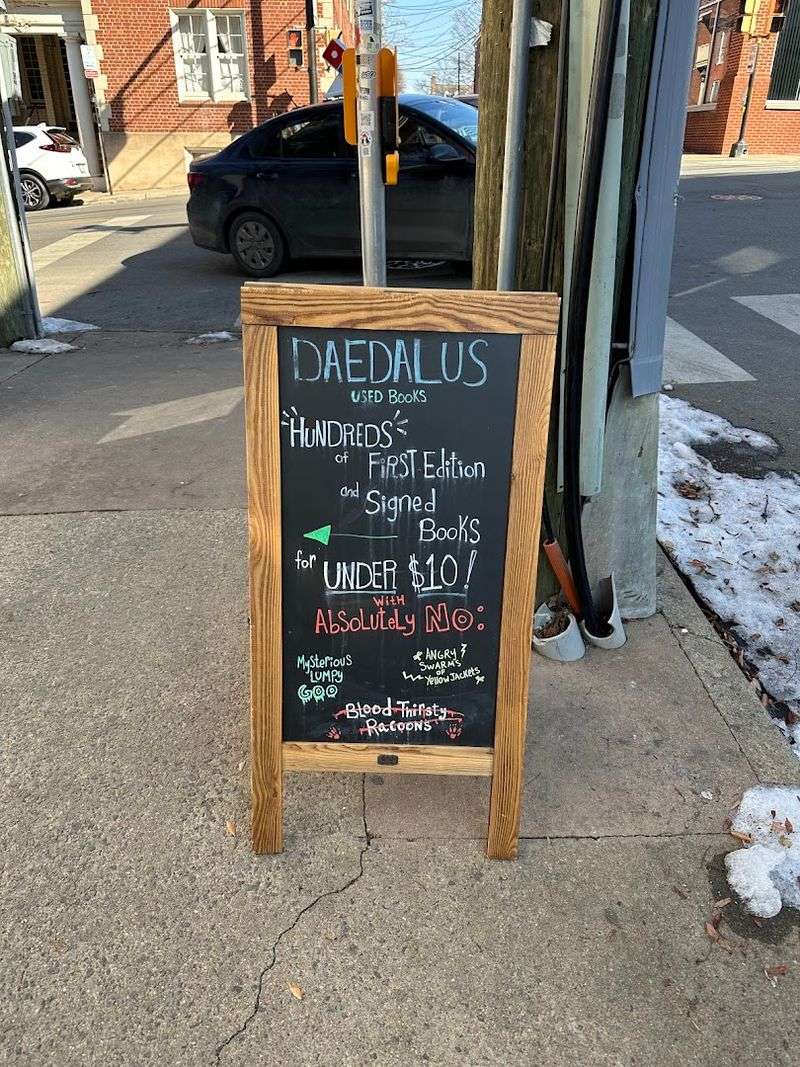 DAEDALUS
USED BOOKS
HUNDREDS
of FIRST Edition
and Signed
Books
for UNDER $10!
WITH
AbSoLUtELy NO:
Mysterious
LUMPY
GOO
ANGRY
SWARMS
OF
YEllOW JACKETS
Blood Thirsty
Racoons